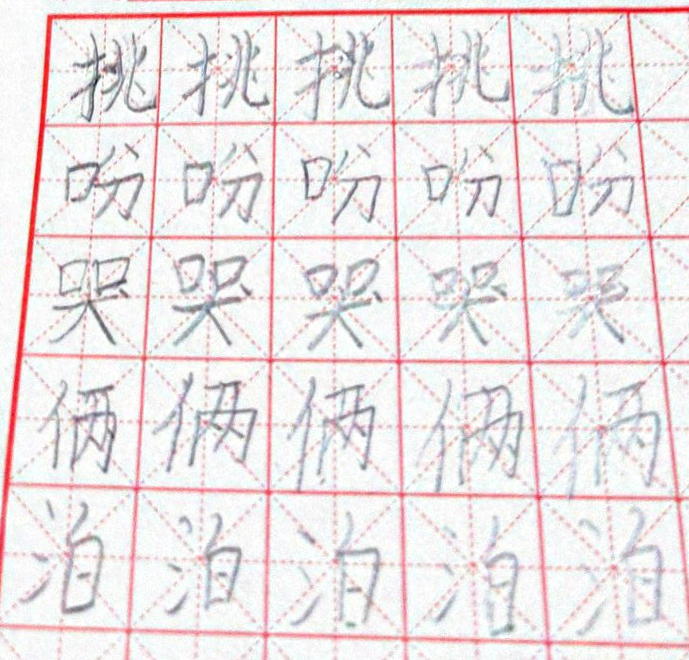 挑挑挑挑挑
吩吩吩吩吩
哭哭哭哭哭
俩俩俩俩俩
泊泊泊泊泊